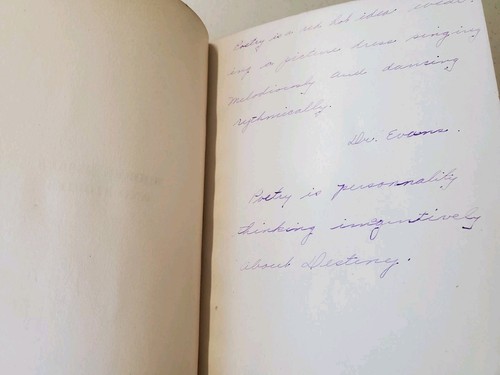 Poetry is a red hot idea wear-
ing a picture dress singing
melodiously and dancing
rythmically.
Dr. Evans.
Poetry is personnality
thinking imaguntively
about Destiny.